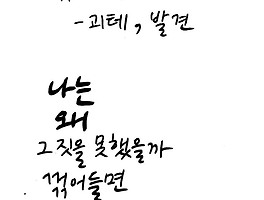 - 괴테, 발견
나는
왜
그짓을 못했을까
꺾어들면